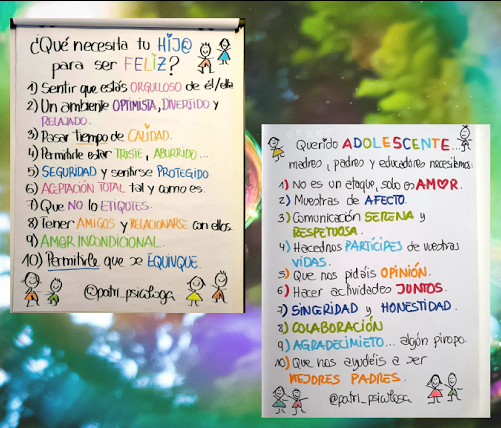 ¿Qué necesita tu HIJ@
para ser FELIZ?
1) Sentir que estás ORGULLOSO de él/ella
2) Un ambiente OPTIMISTA, DIVERTIDO y
RELAJADO.
3) Pasar tiempo de CALIDAD.
4) Permitirle estar TRISTE, ABURRIDO...
5) SEGURIDAD y sentirse PROTEGIDO.
6) ACEPTACIÓN TOTAL tal y como es.
7) Que NO lo ETIQUETES.
8) Tener AMIGOS y RELACIONARSE con ellos.
9) AMOR INCONDICIONAL.
10) Permitirle que se EQUIVOQUE.
@patri_psicologa
Querido ADOLESCENTE...
madres, padres y educadores necesitamos:
1) No es un ataque, solo es AMOR.
2) Muestras de AFECTO.
3) Comunicación SERENA y
RESPETUOSA.
4) Hacednos PARTÍCIPES de vuestras
VIDAS.
5) Que nos pidáis OPINIÓN.
6) Hacer actividades JUNTOS.
7) SINCERIDAD y HONESTIDAD.
8) COLABORACIÓN
9) AGRADECIMIETO... algún piropo.
10) Que nos ayudéis a ser
MEJORES PADRES.
@patri_psicologa